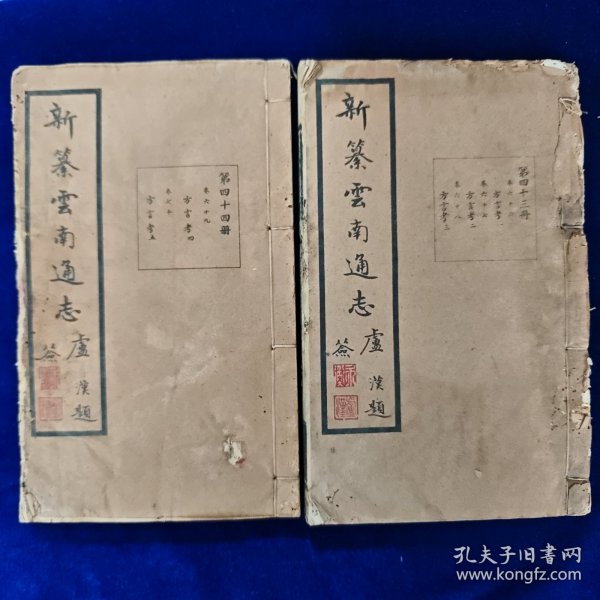 新纂雲南通志
盧漢題
簽
第四十四册
卷六十九
方言考四
卷七十
方言考五
新纂雲南通志
盧漢題
簽
第四十三册
卷六十六
方言考一
卷六十七
方言考二
卷六十八
方言考三
孔夫子旧书网
www.kongfz.com